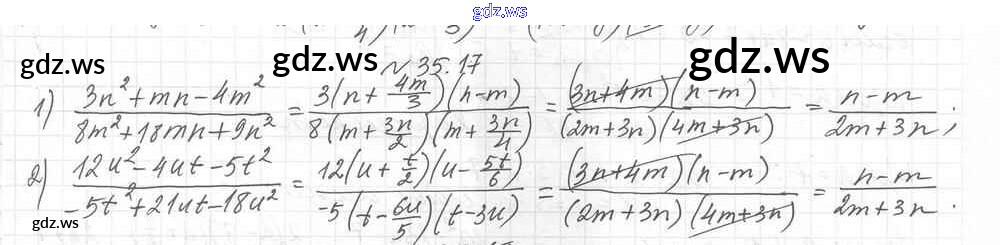 gdz.ws
gdz.ws gdz.ws gdz.ws
№35.17
1) \frac{3n^2+mn-4m^2}{8m^2+18mn+9n^2} = \frac{3(n+\frac{4m}{3})(n-m)}{8(m+\frac{3n}{2})(m+\frac{3n}{4})} = \frac{(3n+4m)(n-m)}{(2m+3n)(4m+3n)} = \frac{n-m}{2m+3n};
2) \frac{12u^2-4ut-5t^2}{-5t^2+21ut-18u^2} = \frac{12(u+\frac{t}{2})(u-\frac{5t}{6})}{-5(t-\frac{6u}{5})(t-3u)} = \frac{(3n+4m)(n-m)}{(2m+3n)(4m+3n)} = \frac{n-m}{2m+3n}.
gdz.ws gdz.ws gdz.ws